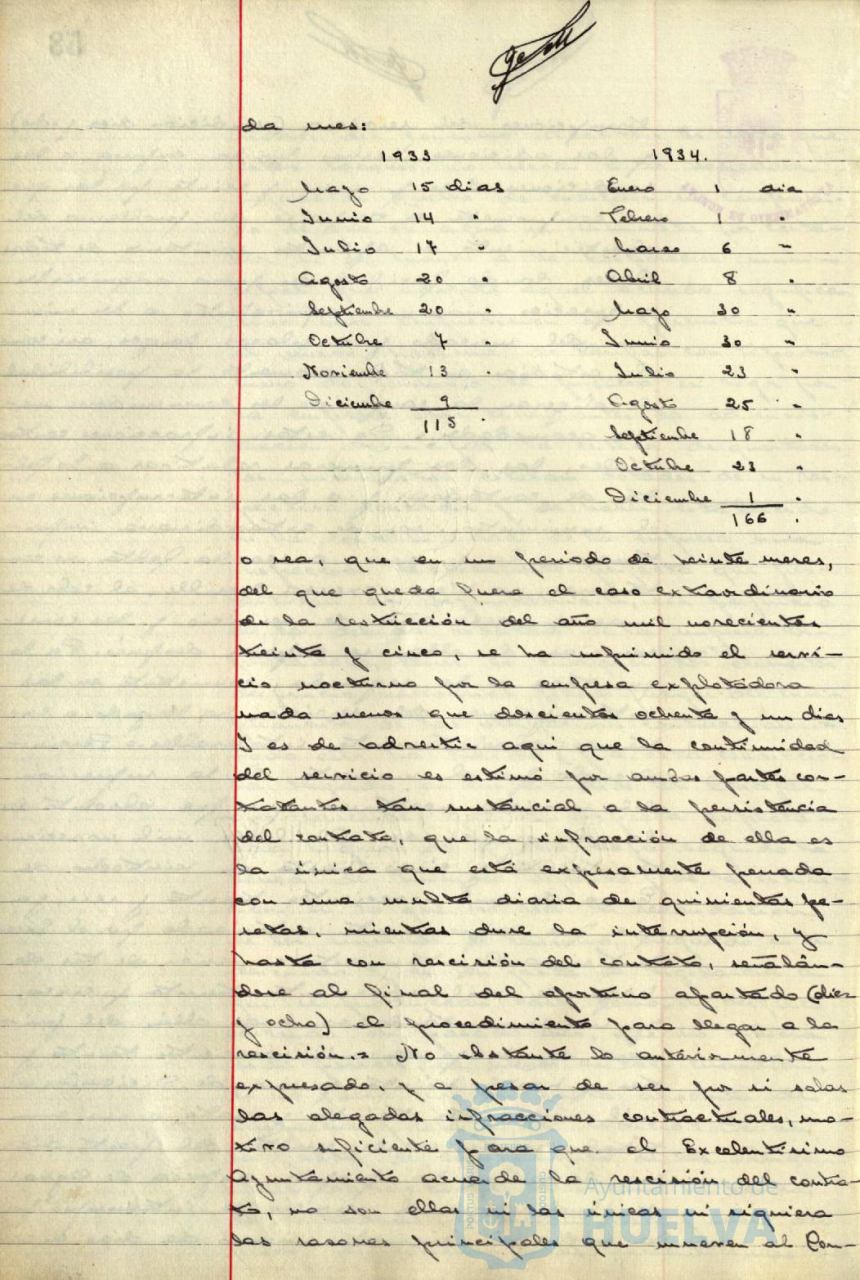 da mes:
1933 1934.
Mayo 15 dias Enero 1 dia
Junio 14 " Febrero 1 "
Julio 17 " Marzo 6 "
Agosto 20 " Abril 8 "
Septiembre 20 " Mayo 30 "
Octubre 7 " Junio 30 "
Noviembre 13 " Julio 23 "
Diciembre 9 Agosto 25 "
115 "
Septiembre 18 "
Octubre 23 "
Diciembre 1 "
166 "
o sea, que en un periodo de veinte meses,
del que queda fuera el caso extraordinario
de la restricción del año mil novecientos
treinta y cinco, se ha suprimido el servi-
cio nocturno por la empresa explotadora
nada menos que doscientos ochenta y un dias
Y es de advertir aqui que la continuidad
del servicio es estimó por ambas partes con-
tratantes tan sustancial a la persistencia
del contrato, que la infracción de ella es
la única que está expresamente penada
con una multa diaria de quinientas pe-
setas, mientras dure la interrupción, y
hasta con rescisión del contrato, señalán-
dose al final del oportuno apartado (diez
y ocho) el procedimiento para llegar a la
rescisión.= No obstante lo anteriormente
expresado, y a pesar de ser por si solas
las alegadas infracciones contractuales, mo-
tivo suficiente para que el Excelentisimo
Ayuntamiento acuerde la rescisión del contra-
to, no son ellas ni las únicas ni siquiera
las razones principales que mueven al Con-
Ayuntamiento de
HUELVA